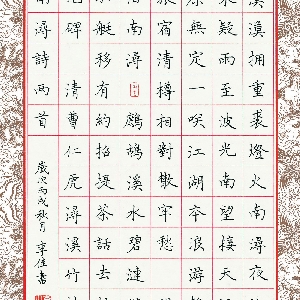 溪擁重裘燈火南潯夜
疑雨至波光南望接天
無定一咲江湖本浪游
宿清樽相對散牢愁
南潯
鷓鴣溪水碧漣
艇移有約招提茶話去
碑 清 曹仁虎 潯溪竹
潯詩兩首
歲次丙戌秋月 李佳書